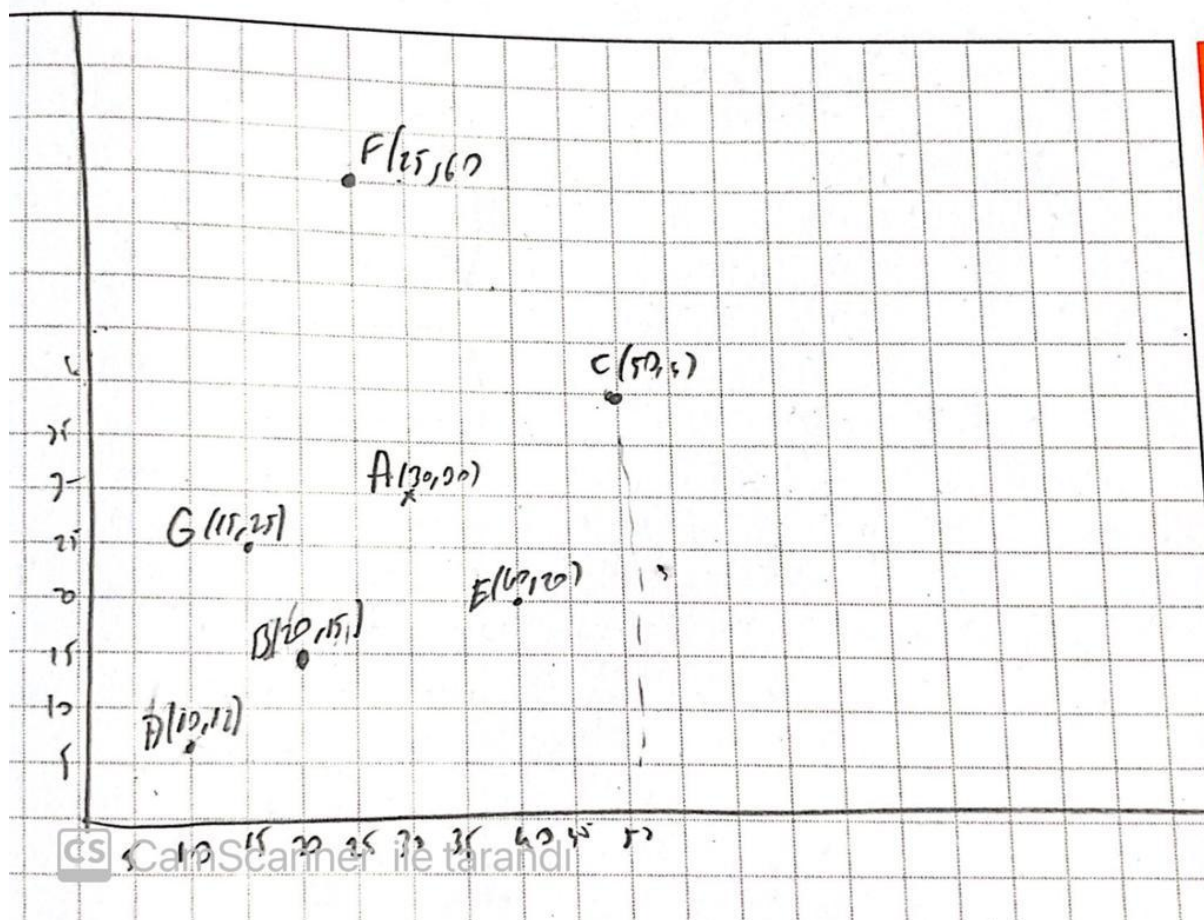 F(25,60
C(50,
A(30,30)
G(15,25)
E(40,20)
B(20,15,)
D(10,12)
25
20
15
10
5
5 10 15 20 25 30 35 40 45 50
CS CamScanner ile tarandı